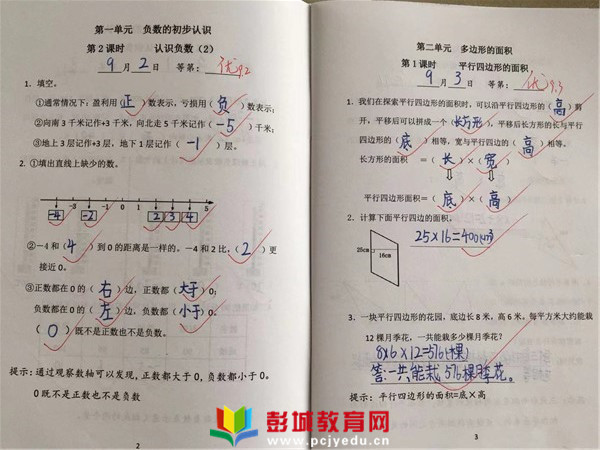 第一单元 负数的初步认识
第2课时 认识负数（2）
9月2日 等第：优9.2
1. 填空。
①通常情况下：盈利用（正）数表示，亏损用（负）数表示；
②向南3千米记作+3千米，向北走5千米记作（-5）千米；
③地上3层记作+3层，地下1层记作（-1）层。
2. ①填出直线上缺少的数。
-4 -3 -2 -1 0 1 2 3 4 5
②-4和（4）到0的距离是一样的。-4和2比，（2）更
接近0。
③正数都在0的（右）边，正数都（大于）0；
负数都在0的（左）边，负数都（小于）0；
（0）既不是正数也不是负数。
提示：通过观察数轴可以发现，正数都大于0，负数都小于0。
0既不是正数也不是负数
2
第二单元 多边形的面积
第1课时 平行四边形的面积
9月3日 等第：优9.3
1. 我们在探索平行四边形的面积时，可以沿平行四边形的（高）剪
开，平移后可以拼成一个（长方形），平移后长方形的长与平行
四边形的（底）相等，宽与平行四边形的（高）相等。
长方形的面积 =（长）×（宽）
平行四边形面积=（底）×（高）
2. 计算下面平行四边的面积。
25×16=400(cm²)
25cm
16cm
3. 一块平行四边形的花园，底边长8米，高6米。每平方米大约能栽
12棵月季花，一共能栽多少棵月季花？
8×6×12=576(棵)
答：一共能栽576棵月季花。
提示：平行四边形的面积=底×高
3
彭城教育网
www.pcjyedu.cn